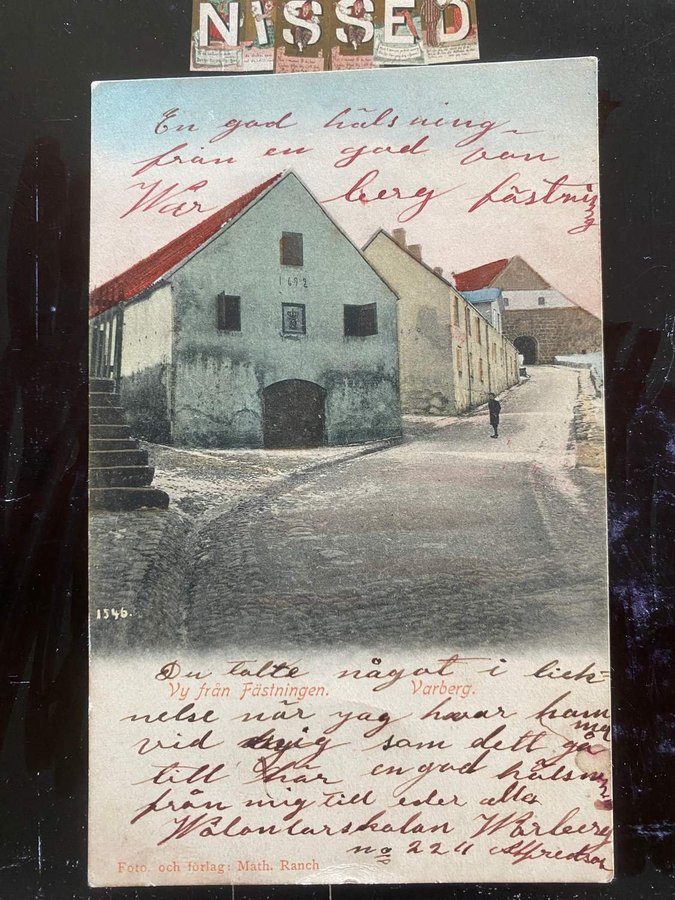 NISSED
En god hälsning
från en god vän
War berg fästning
1692
1546.
Du talte något i liek=
Vy från Fästningen. Varberg.
nelse när jag har ham
vid som dett gå
till här en god hälsn
från mig till eder alla
Wolontarskolan Warberg
no 224 Alfredson
Foto. och förlag: Math. Ranch